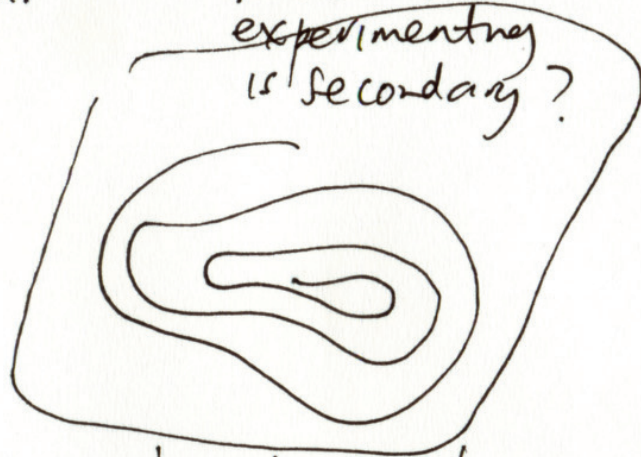 experimenting
is secondary?